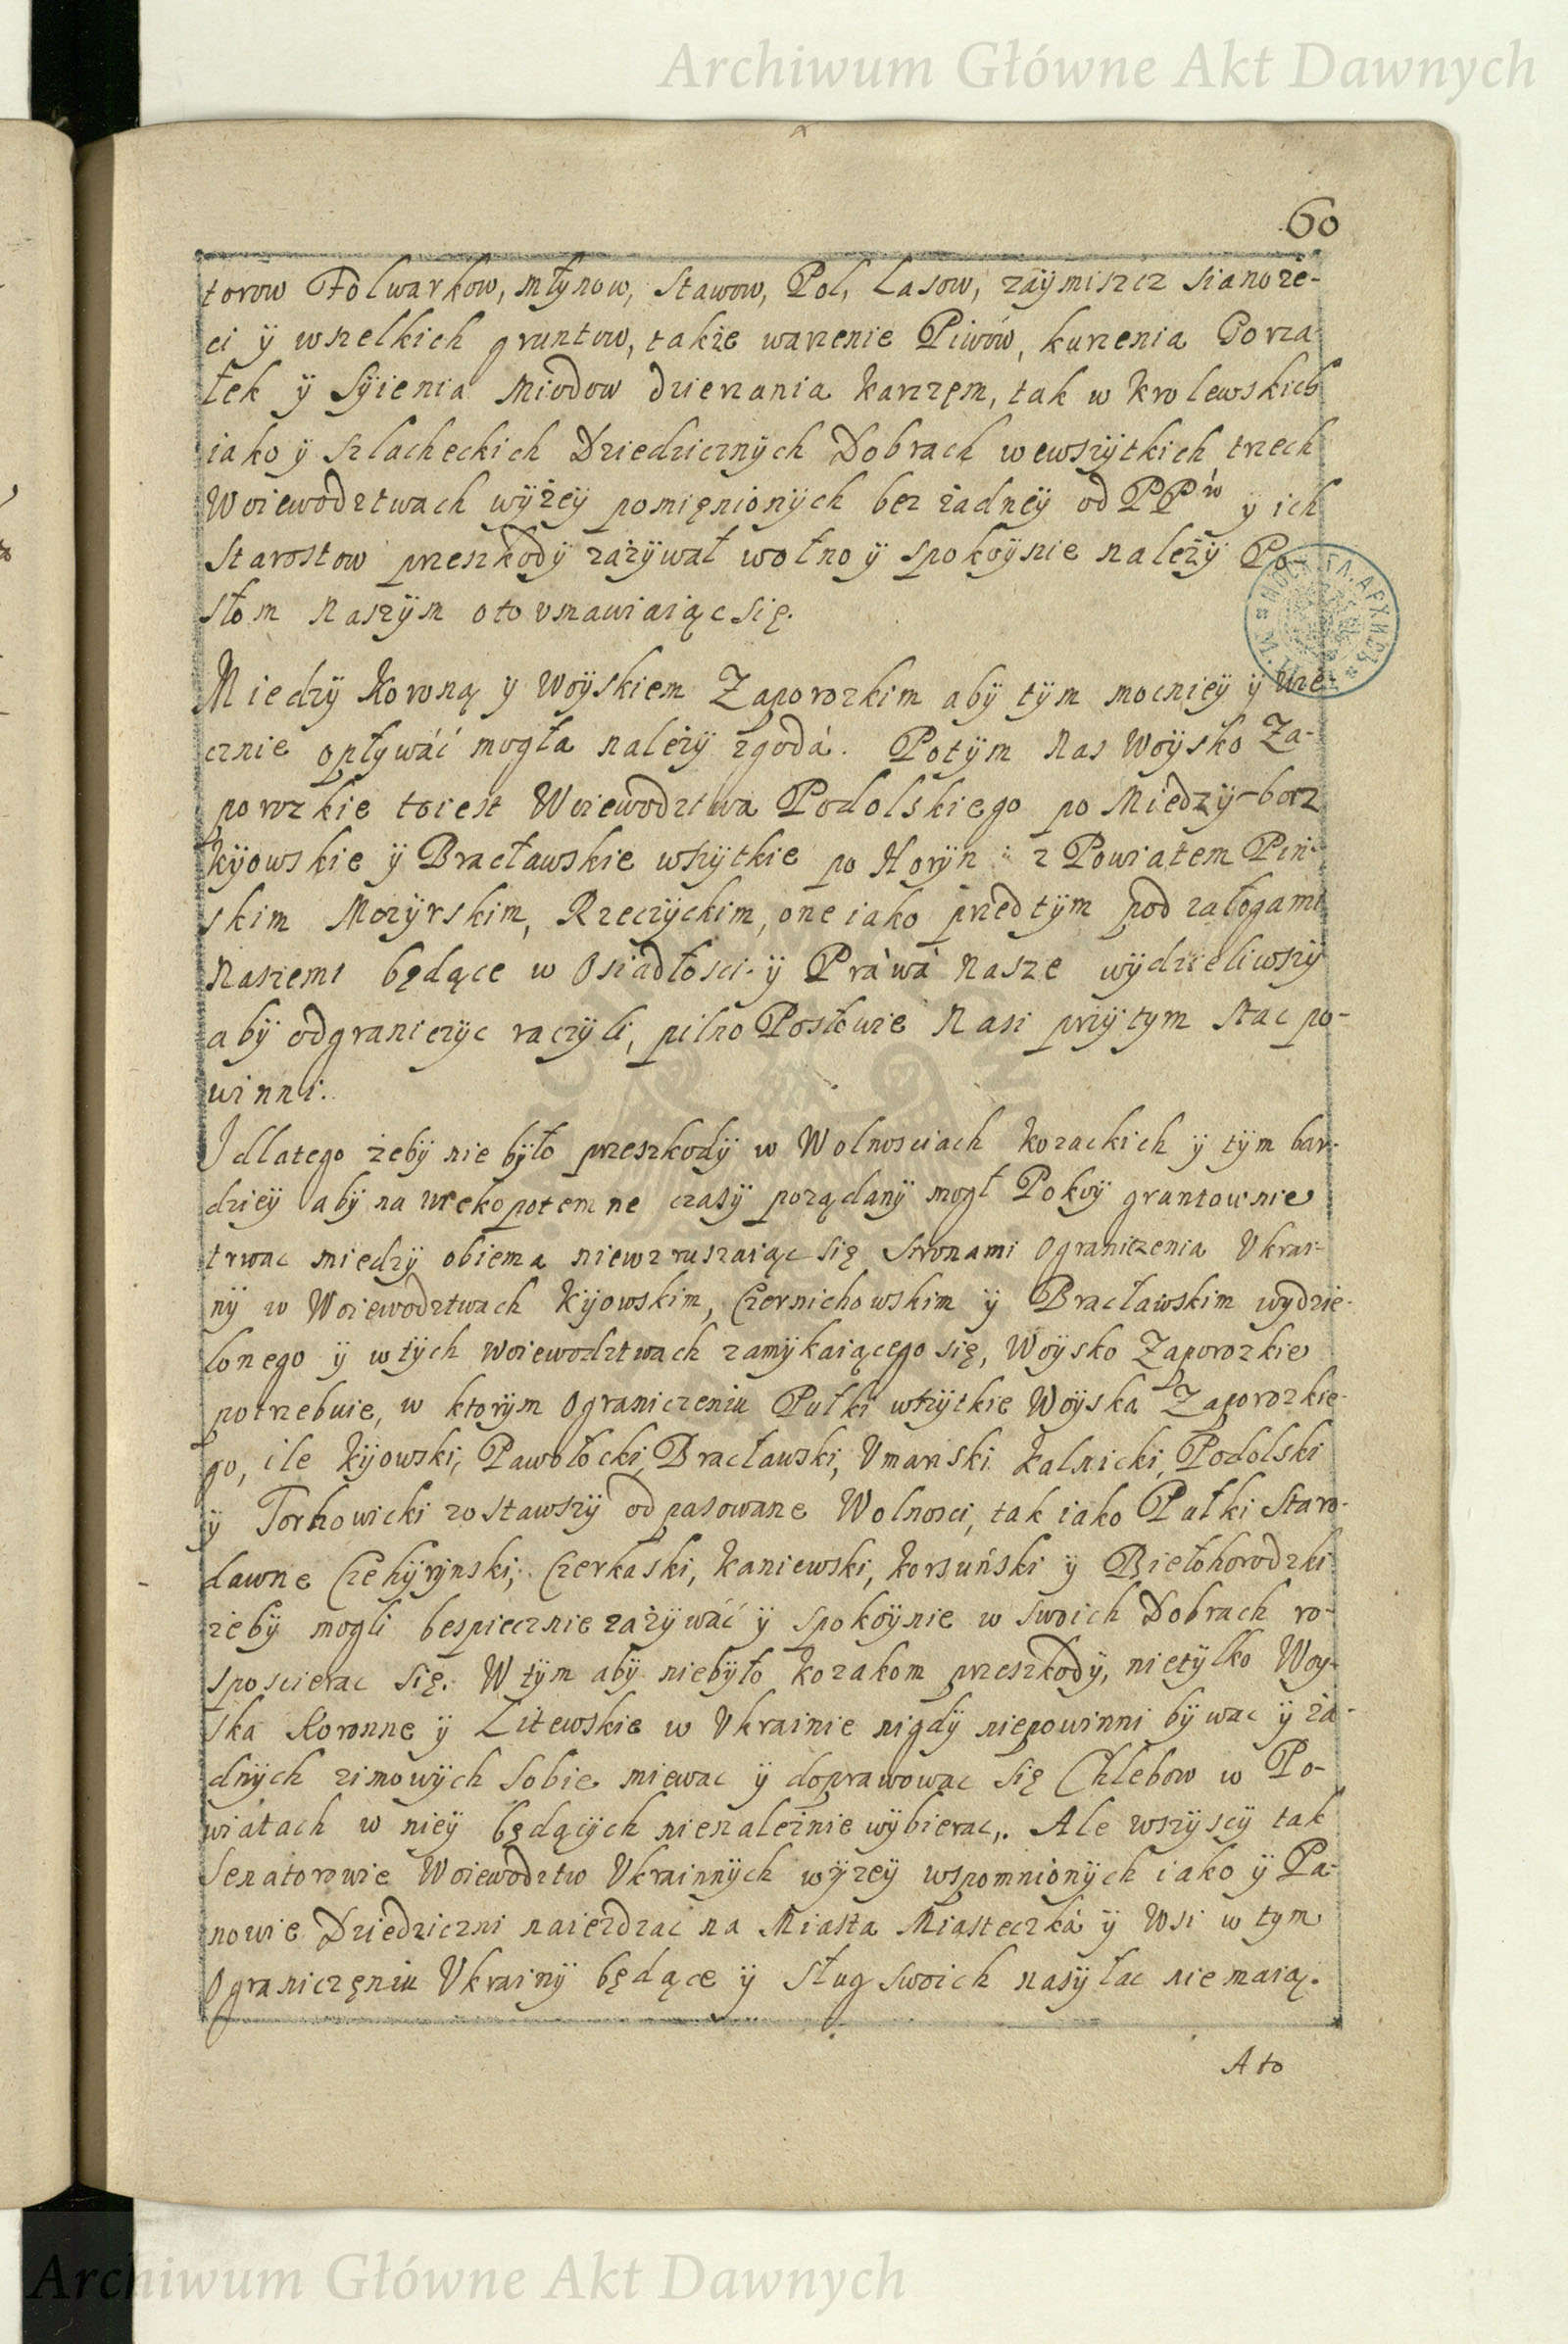 Archiwum Główne Akt Dawnych
60
torow Folwarkow, młynow, stawow, Pol, Lasow, zaÿmiszcz sianoże-
ci ÿ wszelkich gruntow, także warzenie Piwów, kurzenia Gorza
łek ÿ Sÿienia Miodow dzierzania karczęm, tak w Krolewskich
iako ÿ szlacheckich Dziedzicznÿch Dobrach wewszÿtkich trzech
Woiewodztwach wÿżeÿ pomięnionÿch bez żadneÿ od PPw y ich
Starostow przeszkodÿ zażÿwał wolno ÿ spokoÿnie należÿ Po-
słom Naszÿm oto vmawiaiąc się.
Miedzÿ Koroną y Woÿskiem Zaporozkim abÿ tÿm mocnieÿ ÿ wie
cznie opłÿwáć mogła należÿ zgodá. Potÿm Nas Woÿsko Za-
porozkie toiest Woiewodztwa Podolskiego po Miedzÿ-borz
Kÿowskie ÿ Bracławskie wszÿtkie po Horÿn z Powiatem Pin
skim Mozÿrskim, Rzeczÿckim, one iako przedtÿm pod załogami
Naszemi będące w Osiadłosci ÿ Práwá Nasze wÿdzieliwszÿ
abÿ odgraniczÿc raczÿli, pilno Posłowie Nasi przÿtym stac po-
winni.
Idlatego żebÿ nie bÿło przeszkodÿ w Wolnosciach kozackich ÿ tÿm bar-
dzieÿ abÿ na wiekopotemne czasÿ pożądanÿ mogł Pokoÿ gruntownie
trwac miedzÿ obiema niewzruszaiąc się stronami Ograniczenia Vkrai-
nÿ w Woiewodztwach Kijowskim, Czernichowskim ÿ Bracławskim wydzie-
lonego ÿ w tÿch woiewodztwach zamÿkaiącego się, Woÿsko Zaporozkie
potrzebuie, w ktorÿm Ograniczeniu Pułki wszÿtkie Woÿska Zaporozkie-
go, ile Kijowski, Pawołocki, Bracławski, Vmanski Kalnicki, Podolski
ÿ Torhowicki zostawszÿ od pasowane Wolnosci, tak iako Pułki Staro-
dawne Czehÿrÿnski, Czerkaski, Kaniewski, Korsuński ÿ Biełohorodzki
żebÿ mogli bespiecznie zażÿwáć ÿ spokoÿnie w swoich Dobrach ro-
sposcierac się. W tÿm abÿ niebÿło kozakom przeszkodÿ, nietÿlko Woy-
ska Koronne ÿ Litewskie w Vkrainie nigdÿ niepowinni bÿwac ÿ ża-
dnÿch zimowÿch sobie miewac ÿ doprawowac się Chlebow w Po-
wiatach w nieÿ będącÿch nienależnie wÿbierac. Ale wszÿscÿ tak
Senatorowie Woiewodztw Vkrainnÿch wÿżeÿ wspomnionÿch iako ÿ Pa-
nowie Dziedziczni naiezdzac na Miasta Miasteczká ÿ Wsi w tym
Ograniczęniu Vkrainÿ będące ÿ sług swoich nasÿłac nie maią.
A to
Archiwum Główne Akt Dawnych